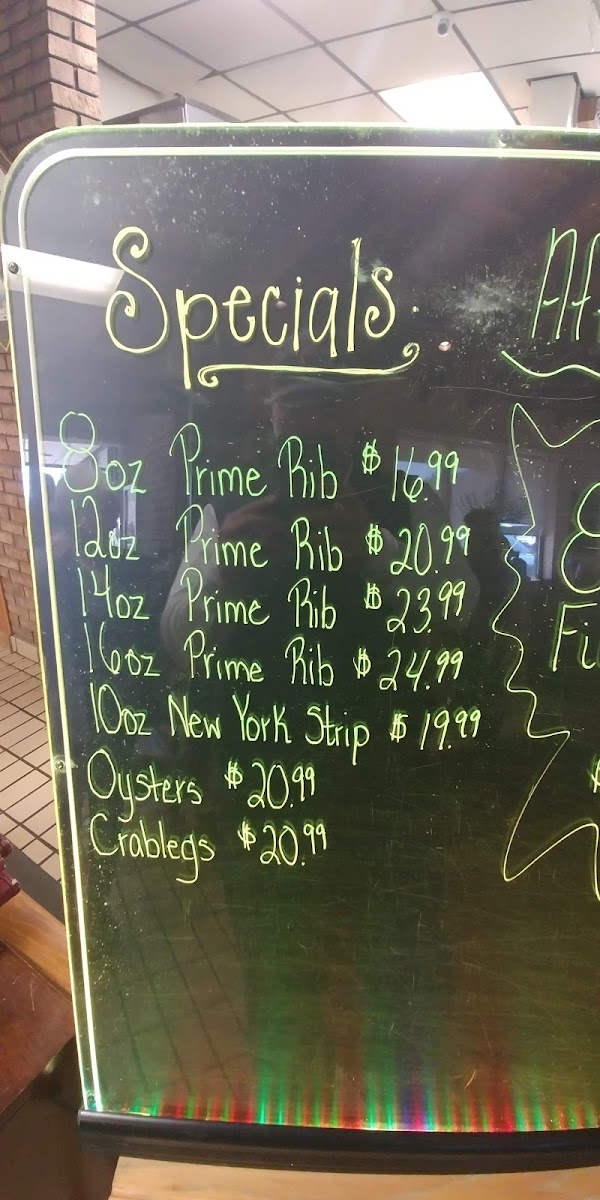 Specials
8oz Prime Rib $16.99
12oz Prime Rib $20.99
14oz Prime Rib $23.99
16oz Prime Rib $24.99
10oz New York Strip $19.99
Oysters $20.99
Crablegs $20.99
8